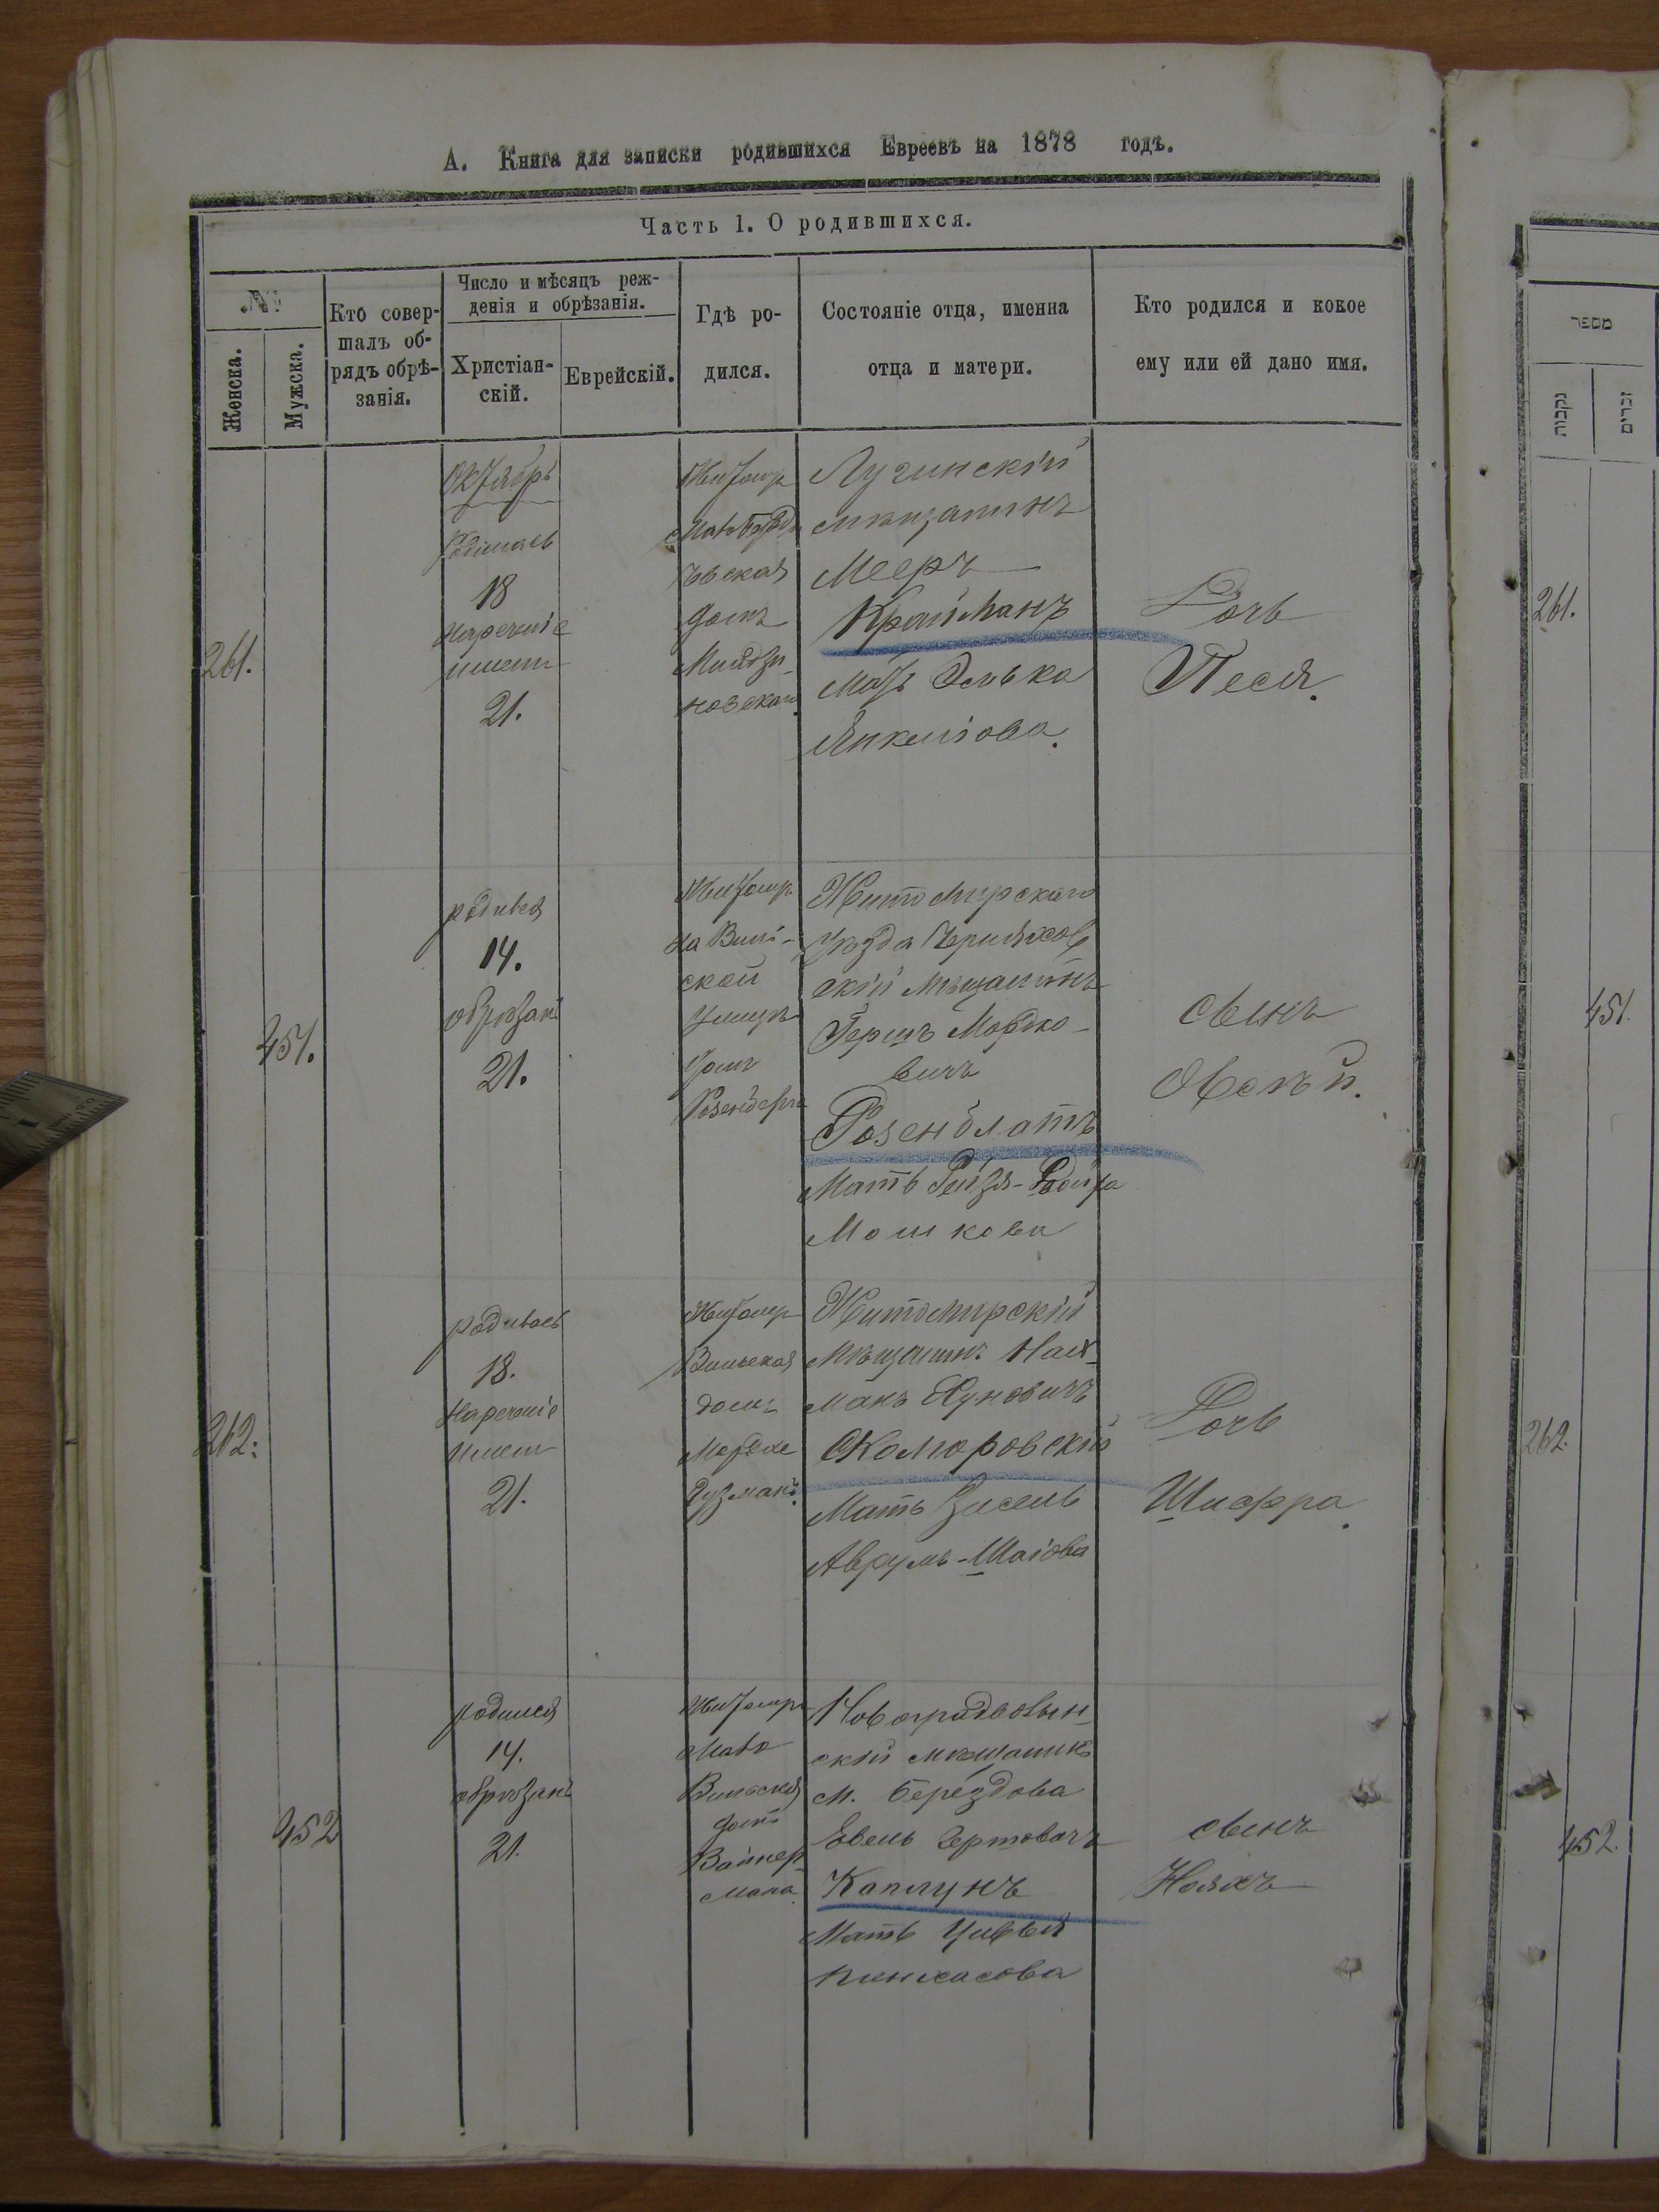 А. Книга для записки родившихся Евреевъ на 1878 годъ.
Часть 1. О родившихся.
№
Женска.
Мужска.
Кто совер-
шалъ об-
рядъ обрѣ-
занія.
Число и мѣсяцъ реж-
денія и обрѣзанія.
Христіан-
скій.
Еврейскій.
Гдѣ ро-
дился.
Состояніе отца, именна
отца и матери.
Кто родился и кокое
ему или ей дано имя.
261.
Октябрь
Родилась
18
Нареченіе
имени
21.
Житомир
ъвская
домъ
Лугинскій
мѣщанинъ
Мееръ
Крайманъ
Мать Элька
Янкелiова.
Дочь
Песя.
451.
родився
14.
обрѣзанъ
21.
Житомир
на Виль-
ской
улицѣ
домъ
Розенберга
Житомирскаго
уѣзда Черняхов
скій мѣщанинъ
Гершъ Мордко-
вичъ
Розенблатъ
Мать Рейзя-
Мошкова
сынъ
Овсѣй.
262.
родилась
18.
Нареченіе
имени
21.
Житомир
Вильская
домъ
Мордка
Гузмана.
Житомирскій
Мѣщанинъ Нах-
манъ Хуновичъ
Комаровскій
Мать Зисель
Аврумъ-Шаiова
Дочь
Шифра.
452
родился
14.
обрѣзанъ
21.
Житомир
Мало
Вильская
домъ
Вайнер-
мана.
Новоградволын-
скій мѣщанинъ
м. Берездова
Евель Гершовичъ
Каплунъ
Мать Цивья
Пинхасова
сынъ
Ноахъ
מספר
נקבות
זכרים
261.
451.
262.
452.